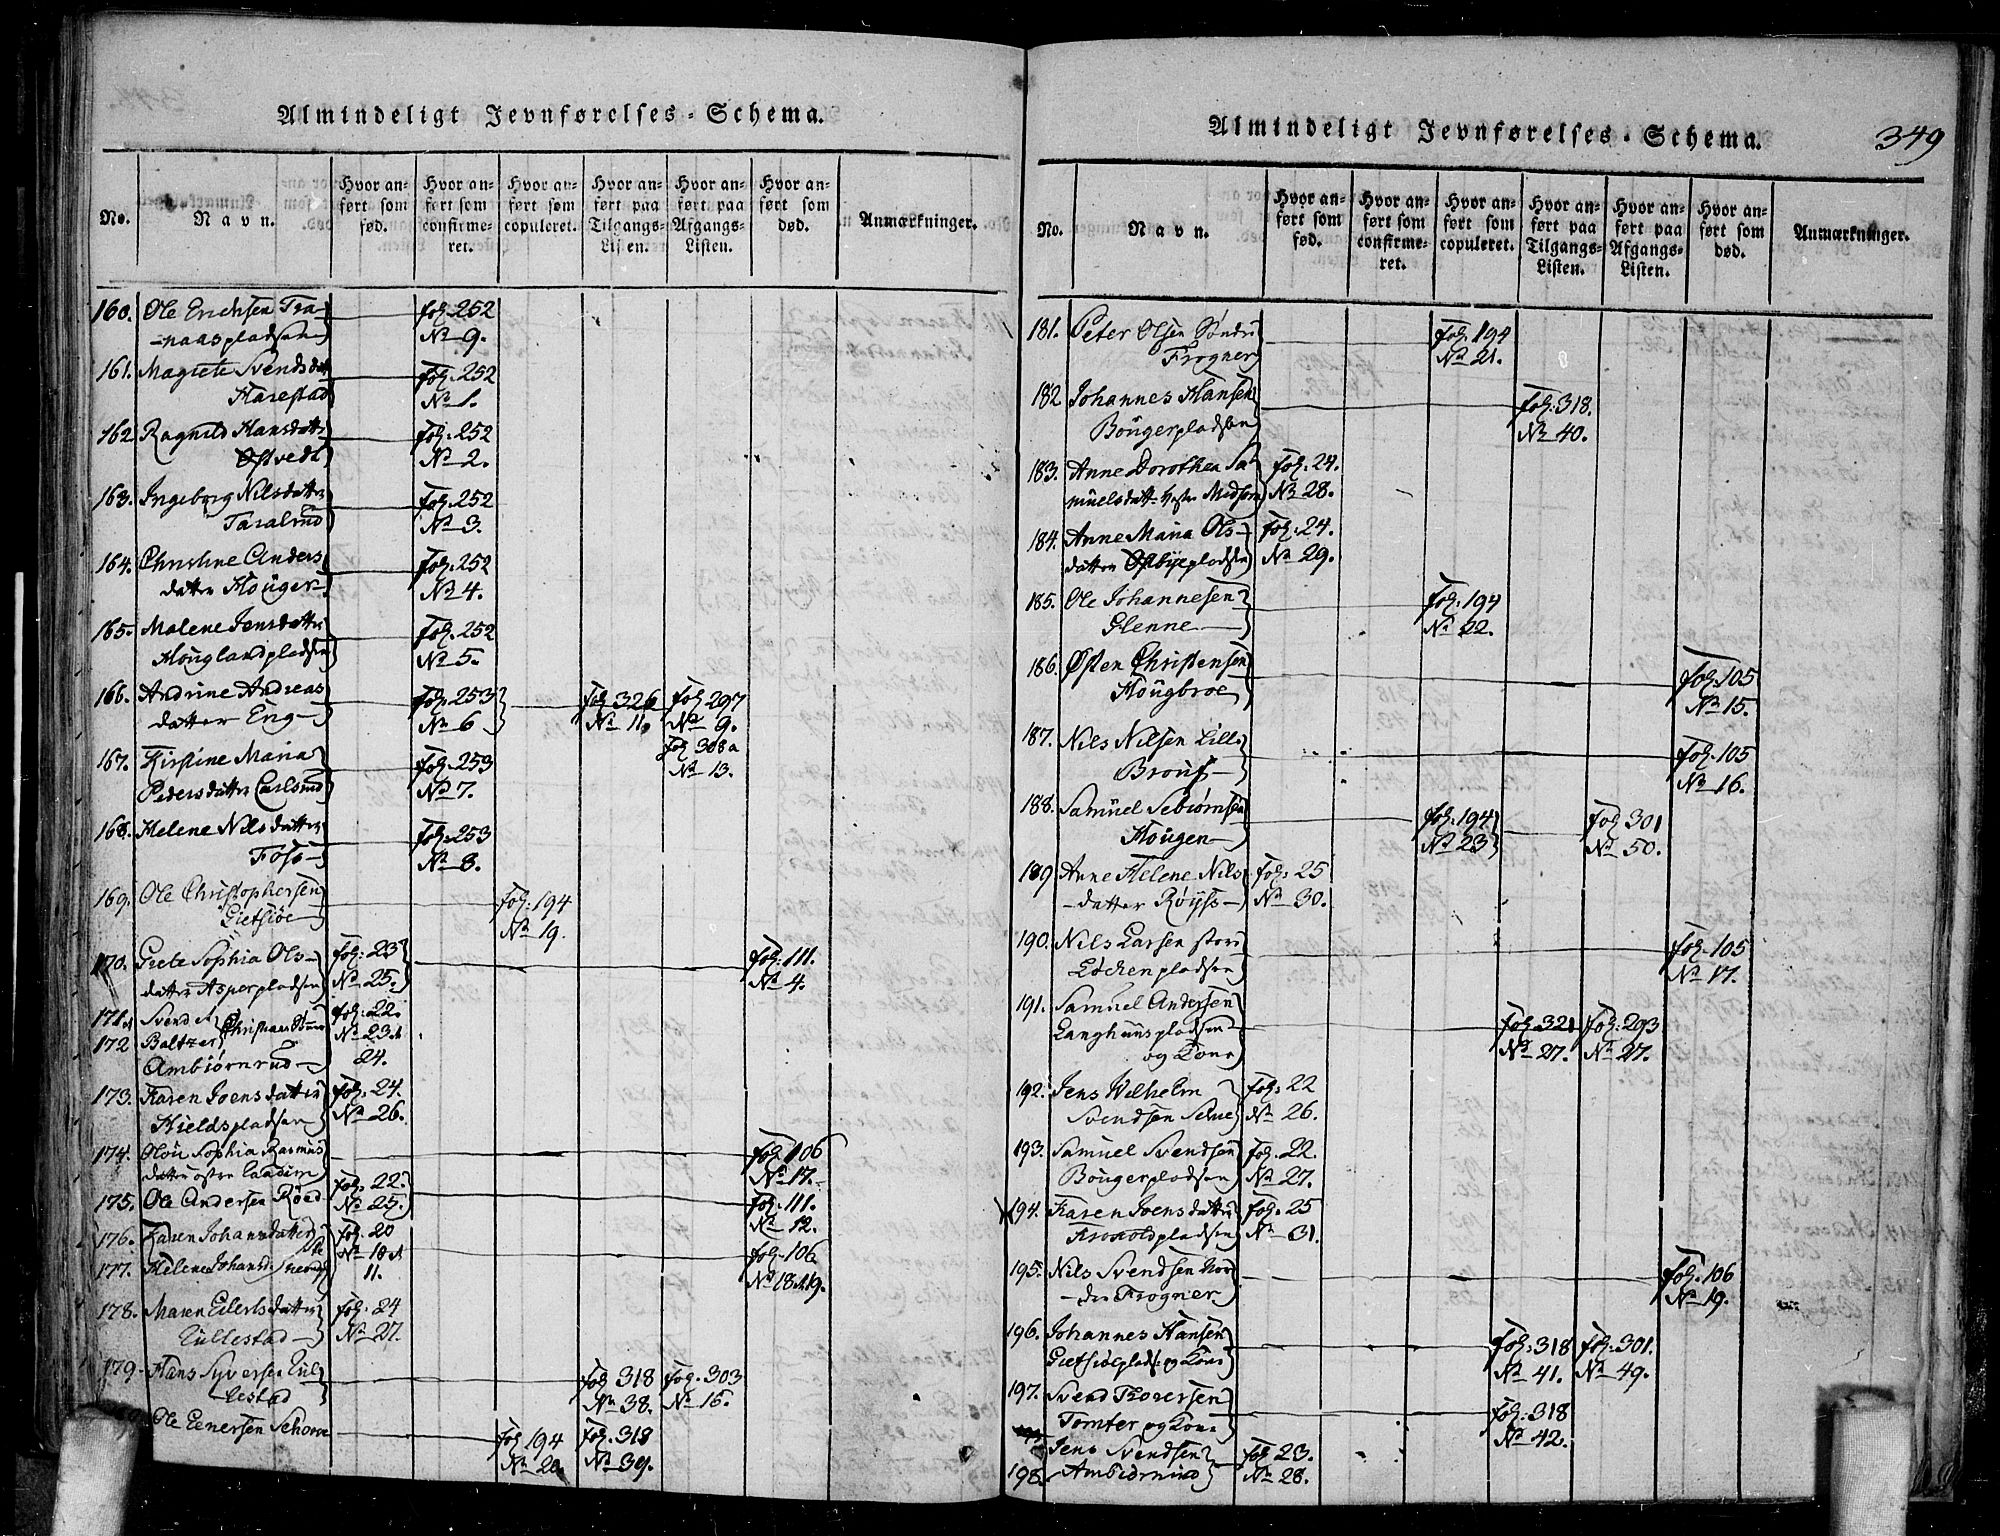 Almindeligt Jevnførelses-Schema.
No.
Navn.
Hvor an-
ført som
fød.
Hvor an-
ført som
confirme-
ret.
Hvor an-
ført som
copuleret.
Hvor an-
ført paa
Tilgangs-
Listen.
Hvor an-
ført paa
Afgangs-
Listen.
Hvor an-
ført som
død.
Anmærkninger.
160. Ole Erichsen Tra- fol. 252
-naaspladsen No 9.
161. Magrete Svendsdat fol. 252
Harestad No 1.
162 Ragnild Hansdatter fol. 252
Østvedt No 2.
163. Ingeborg Nilsdatter fol. 252
Taralrud No 3.
164. Christine Anders fol. 252
datter Houger No 4.
165. Malene Jensdatter fol. 252
Houglandpladsen No 5.
166. Andrine Andreas fol. 253 fol. 326 fol. 297
datter Eng No 6 No 11. No 9.
fol 308a
No 13.
167. Kirstine Maria fol. 253
Pedersdatter Carlsrud No 7.
168. Helene Nilsdatter fol. 253
Foss No 8.
169. Ole Christophersen fol. 194
Gietsiøe No 19.
170. Grete Sophia Ols- fol. 23 fol. 111.
datter Asperpladsen No 25. No 4.
171. Svend fol. 22.
172 Baltzer Christians No 23.
Ambiørnrud 24.
173. Karen Joensdatter fol. 24.
Kieldspladsen No 26.
174. Olou Sophia Rasmus fol. 106
datter No 17.
175. Ole Andersen Röed fol. 22. No 25. fol. 111.
No 12.
176. Karen Johannsdatter fol. 20
No 10
177. Helene Johansd 11. fol. 106
No 18 19.
178. Maren Eilertsdatter fol. 24
Tullestad No 27.
179. Hans Syversen Tul fol 318 fol. 303
lestad No 38. No 16.
Ole Eenersen fol 194 fol. 318
No 20 No 39.
Almindeligt Jevnførelses-Schema. 349
No.
Navn.
Hvor an-
ført som
fød.
Hvor an-
ført som
confirme-
ret.
Hvor an-
ført som
copuleret.
Hvor an-
ført paa
Tilgangs-
Listen.
Hvor an-
ført paa
Afgangs-
Listen.
Hvor an-
ført som
død.
Anmærkninger.
181. Peter Olsen Søndre fol. 194
Frogner No 21.
182 Johannes Hansen fol. 318.
Bougerpladsen No 40.
183. Anne Dorothea Sa fol. 24.
muelsdatt No 28.
184. Anne Maria Ols- fol. 24.
datter Østbyepladsen No 29.
185. Ole Johannesen fol. 194
Glenne No 22.
186. Østen Christensen fol. 105
Hougbroe No 15.
187. Nils Nilsen Lille fol. 105
No 16.
188. Samuel Sebiørnsen fol. 194 fol. 301
Hougen No 23 No 50.
189 Anne Helene Nils fol. 25
-datter Røyss No 30.
190. Nils Larsen store fol. 105
Løchenpladsen No 17.
191. Samuel Andersen fol. 321 fol. 293
Langhuuspladsen No 27. No 27.
og Kone
192. Jens Wilhelm fol. 22
Svendsen No 26.
193. Samuel Svendsen fol. 22.
Bougerpladsen No 27.
194. Karen Joensdatter fol. 25
Froxoldpladsen No 31.
195. Nils Svendsen Nor fol. 106
-dre Frogner No 19.
196. Johannes Hansen fol. 318 fol. 301.
Gietsiøeplads og Kone No 41. No 49.
197. Svend Thoersen fol. 318
Tomter og Kone No 42.
Jens Svendsen fol. 23.
198. Ambiørnrud No 28.